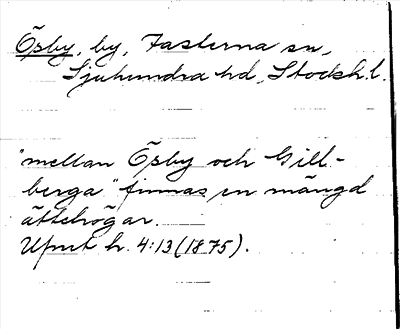 Ösby, by, Fasterna sn,
Sjuhundra hd, Stockh. l.
"mellan Ösby och Gill-
berga" finnas en mängd
ättehögar.
Upmt h. 4:13 (1875).